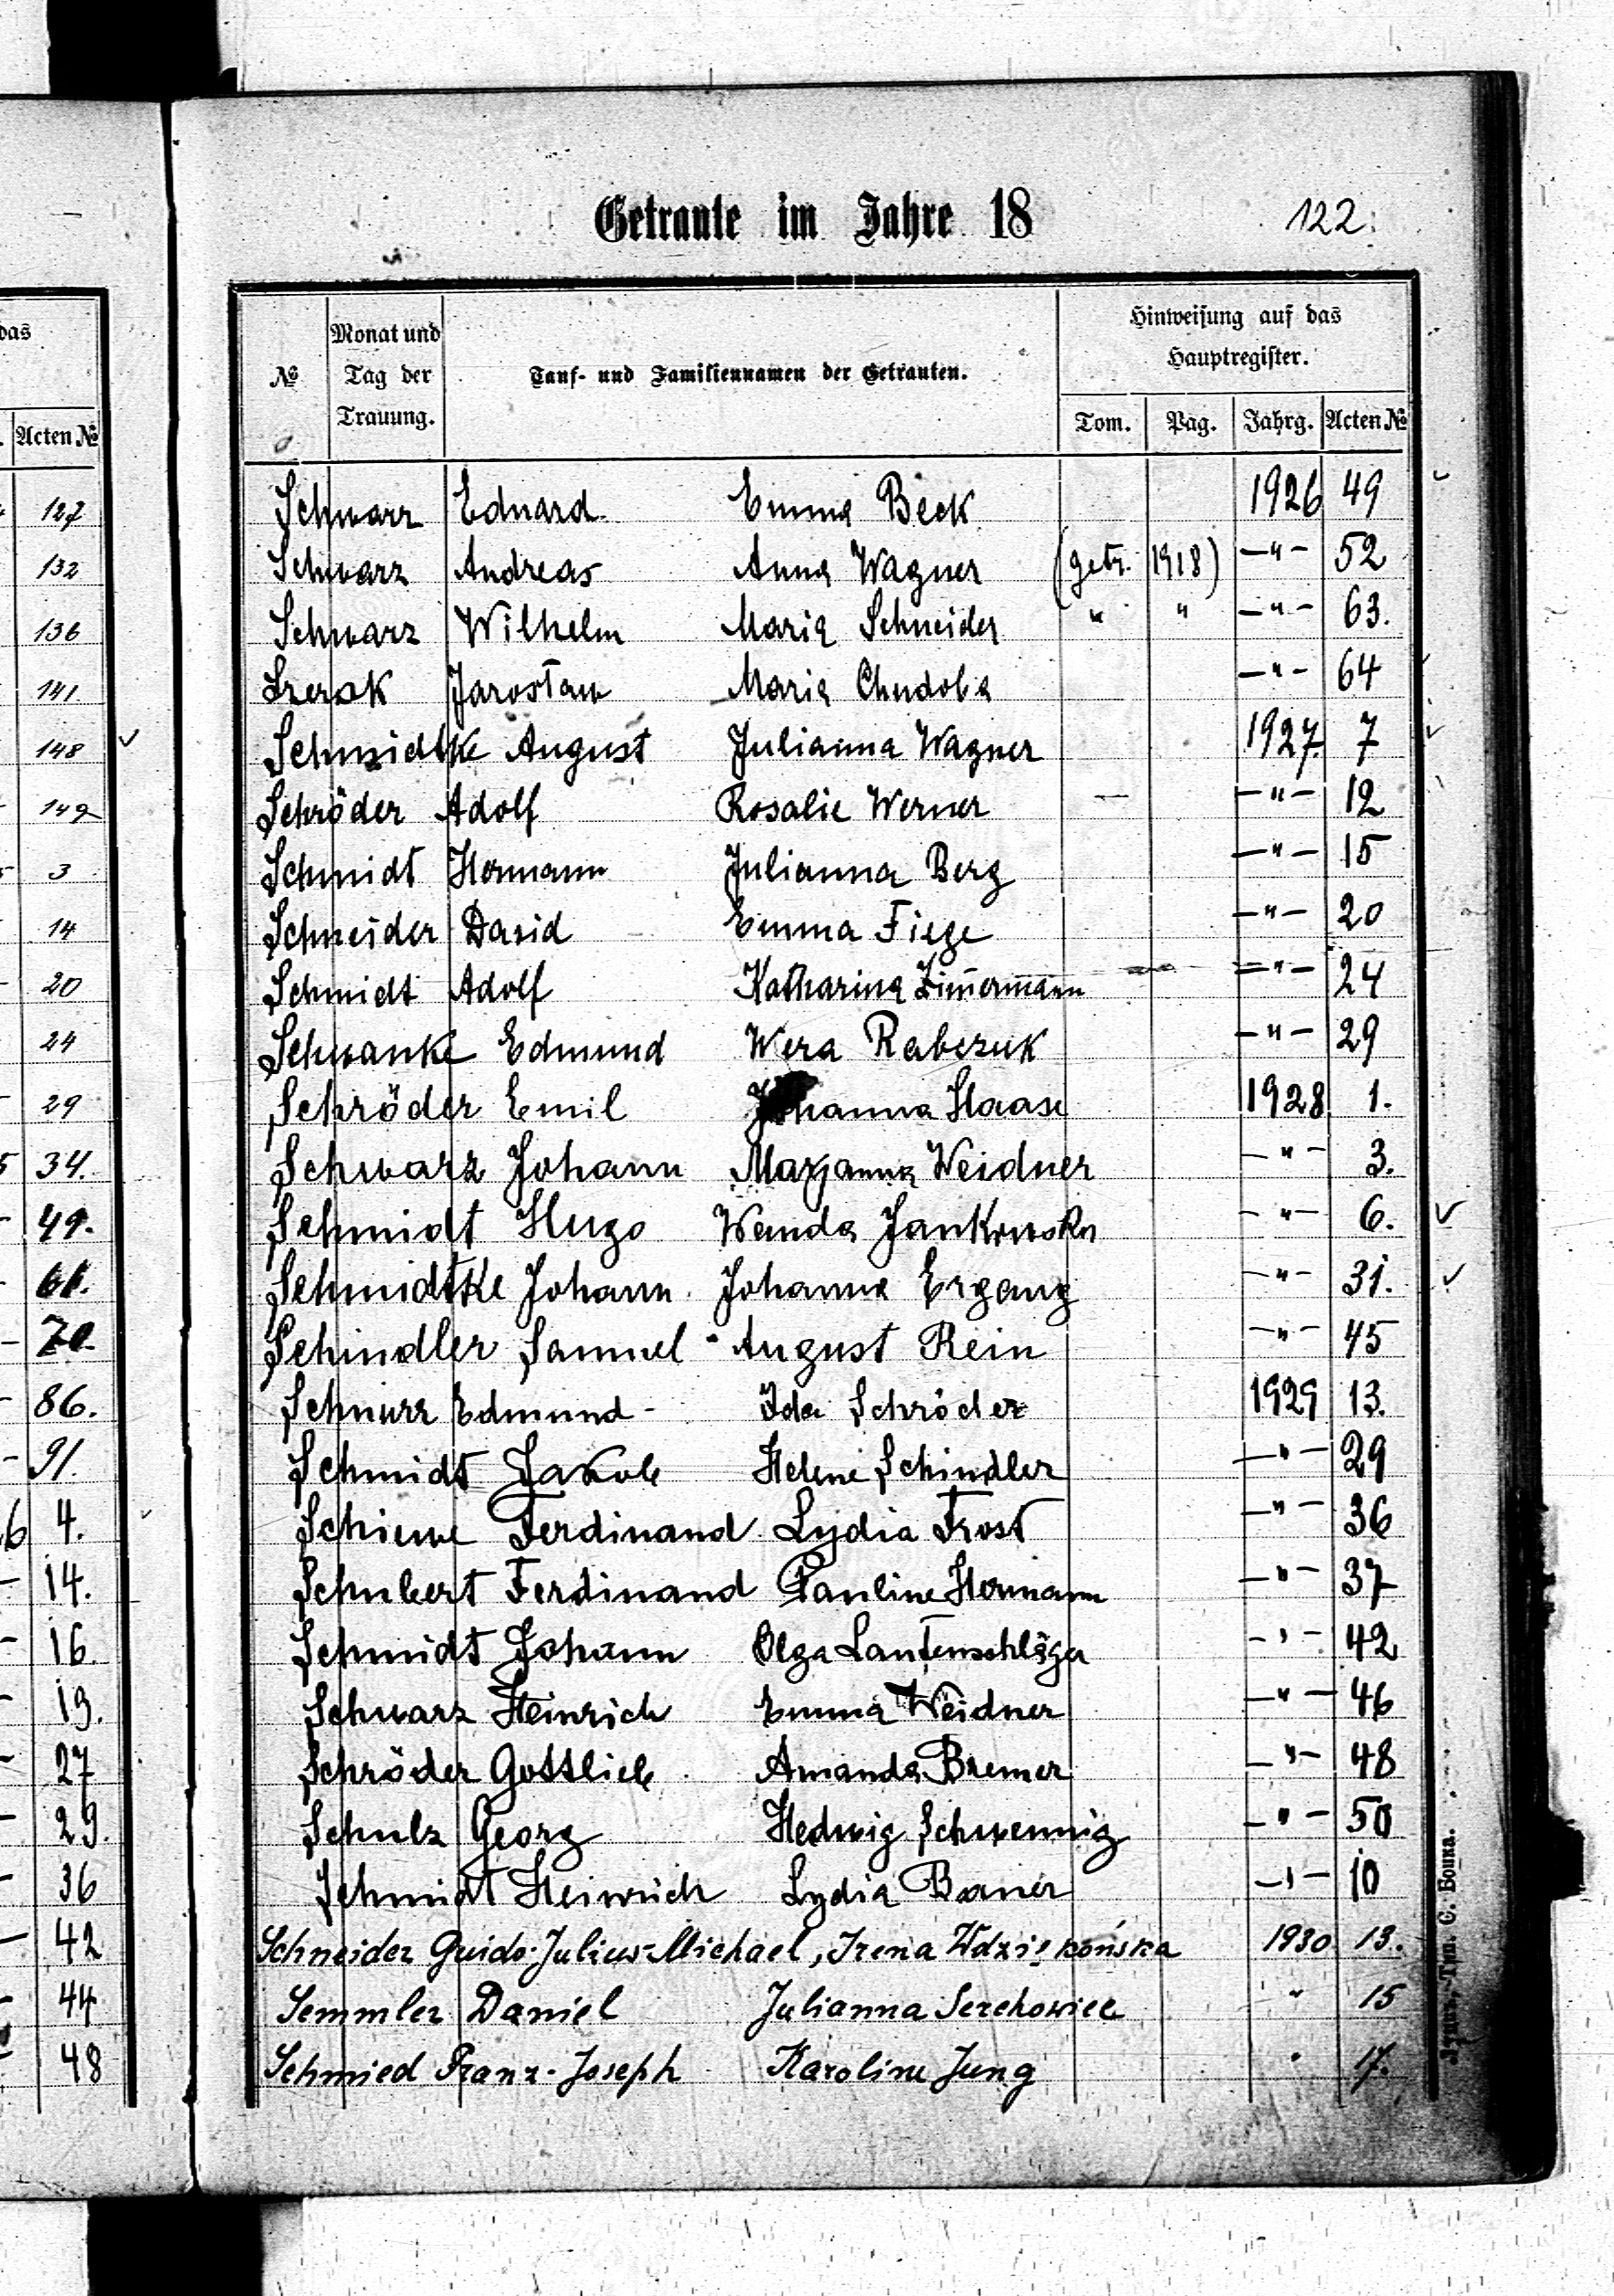 das
Acten №
127
132
136
141.
148
149
3
14
20
24
29
34.
49.
61.
70.
86.
91.
4.
14.
16.
19.
27
29.
36
42
44
48
Getraute im Jahre 18
122.
№ Monat und Tag der Trauung. Tauf- und Familiennamen der Getrauten. Hinweisung auf das Hauptregister.
Tom. Pag. Jahrg. Acten №
Schwarz Eduard Emma Beck 1926 49
Schwarz Andreas Anna Wagner (getr. 1918) —"— 52
Schwarz Wilhelm Maria Schneider " " —"— 63.
Jarosław Maria Chudoba —"— 64
Schmidtke August Julianna Wagner 1927. 7
Schröder Adolf Rosalie Werner —"— 12
Schmidt Hermann Julianna Berg —"— 15
Schneider David Emma Fiege —"— 20
Schmidt Adolf Katharina Zim̅ermann —"— 24
Schwanke Edmund Wera Rabczuk —"— 29
Schröder Emil Johanna Haase 1928 1.
Schwarz Johann Marjanna Weidner —"— 3.
Schmidt Hugo Wanda Jankowska —"— 6.
Schmidtke Johann Johanna Ergang —"— 31.
Schindler Samuel August Rein —"— 45
Schnurr Edmund Ida Schröder 1929 13.
Schmidt Jakob Helene Schindler —"— 29
Schiewe Ferdinand Lydia Frost —"— 36
Schubert Ferdinand Pauline Hermann —"— 37
Schmidt Johann Olga Lautenschläger —"— 42
Schwarz Heinrich Emma Weidner —"— 46
Schröder Gottlieb Amanda Bremer —"— 48
Schulz Georg Hedwig Schwennig —"— 50
Schmidt Heinrich Lydia Bauer —"— 10
Schneider Guido-Julius-Michael, Irena Wdziękońska 1930 13.
Semmler Daniel Julianna Serchowiec " 15
Schmied Franz-Joseph Karoline Jung " 17.